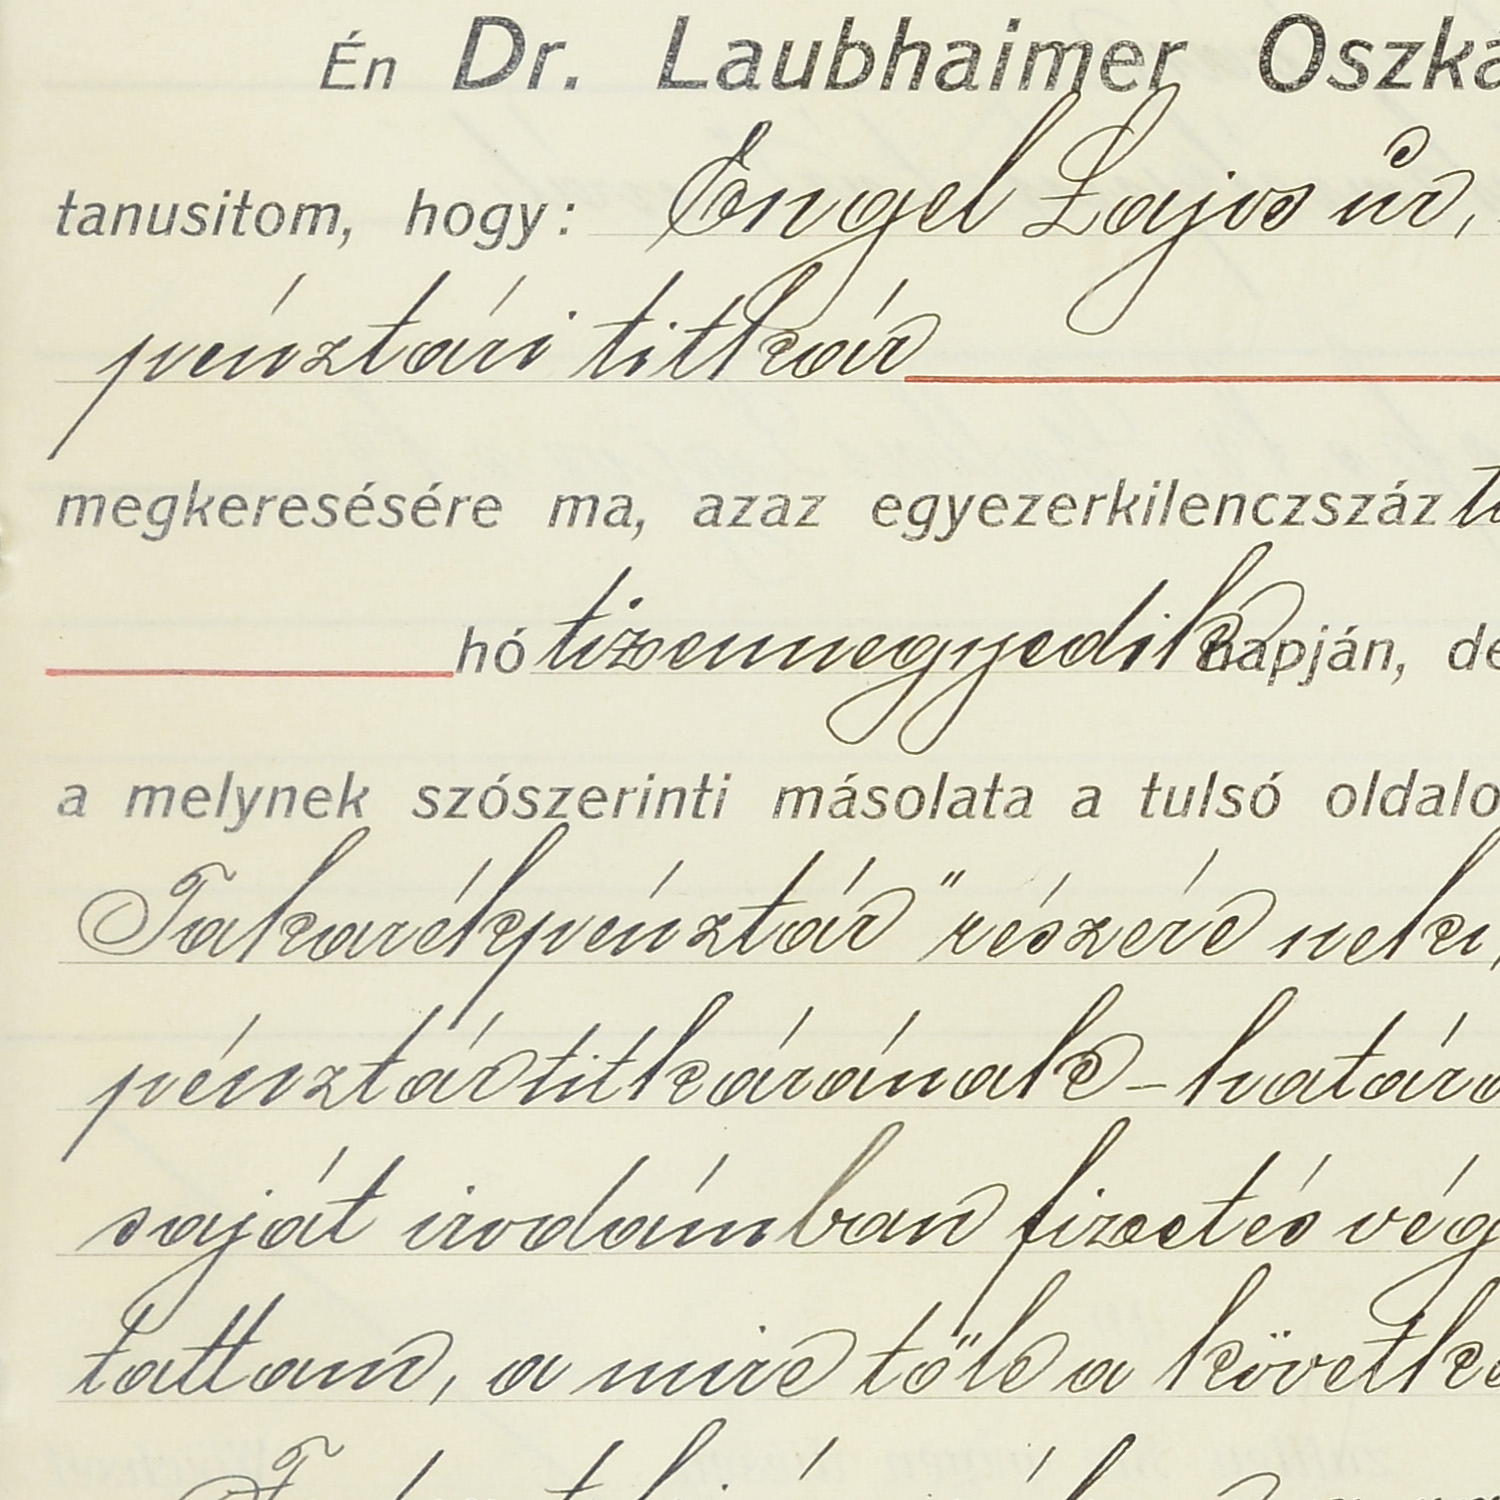 Én Dr. Laubhaimer Oszká
tanusitom, hogy: Engel Lajos úr,
pénztári titkár
megkeresésére ma, azaz egyezerkilenczszáz ti
hó tizennegyedik napján, de
a melynek szószerinti másolata a tulsó oldalo
Takarékpénztár" részére neki,
pénztár titkárának - határo
saját irodámban fizetés vég
tattam, a mire tőle a követke